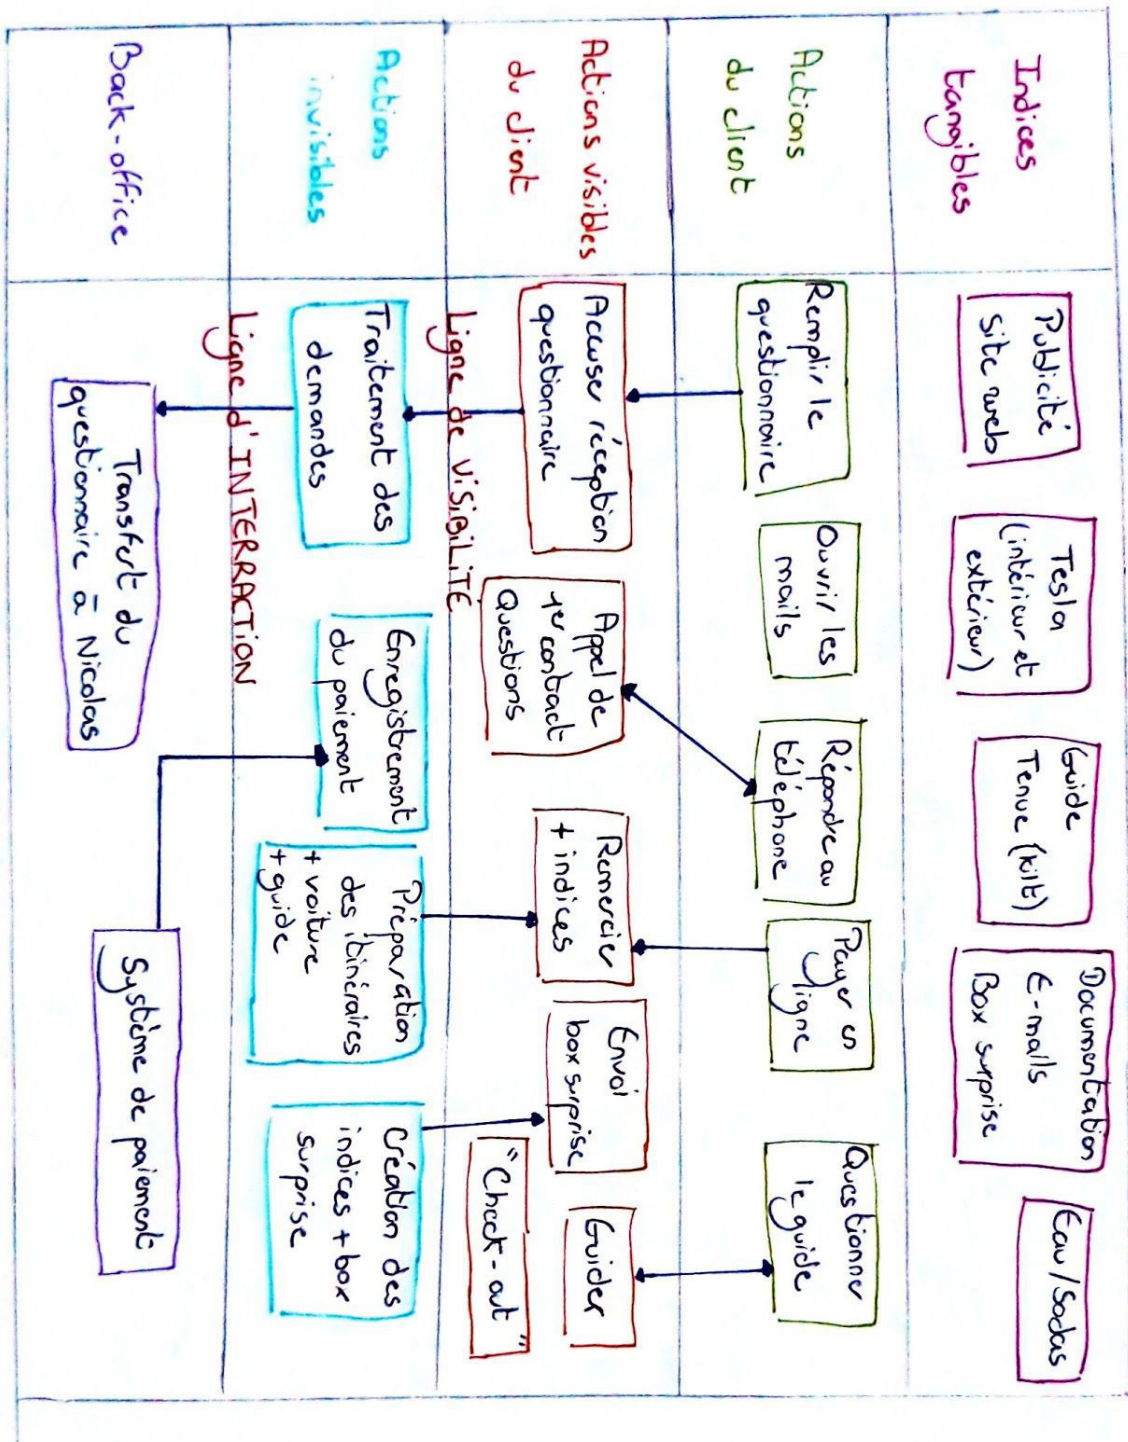 Indices
tangibles
Publicité
site web
Tesla
(intérieur et
extérieur)
Guide
Tenue (kilt)
Documentation
E-mails
Box surprise
Eau/Sodas
Actions
du client
Remplir le
questionnaire
Ouvrir les
mails
Répondre au
téléphone
Payer en
ligne
Questionner
le guide
Actions visibles
du client
Accuser réception
questionnaire
Appel de
1er contact
Questions
Remercier
+ indices
Envoi
box surprise
Guider
"Check-out"
Ligne de VISIBILITÉ
Actions
invisibles
Traitement des
demandes
Enregistrement
du paiement
Préparation
des itinéraires
+ voiture
+ guide
Création des
indices + box
surprise
Ligne d'INTERRACTION
Back-office
Transfert du
questionnaire à Nicolas
Système de paiement